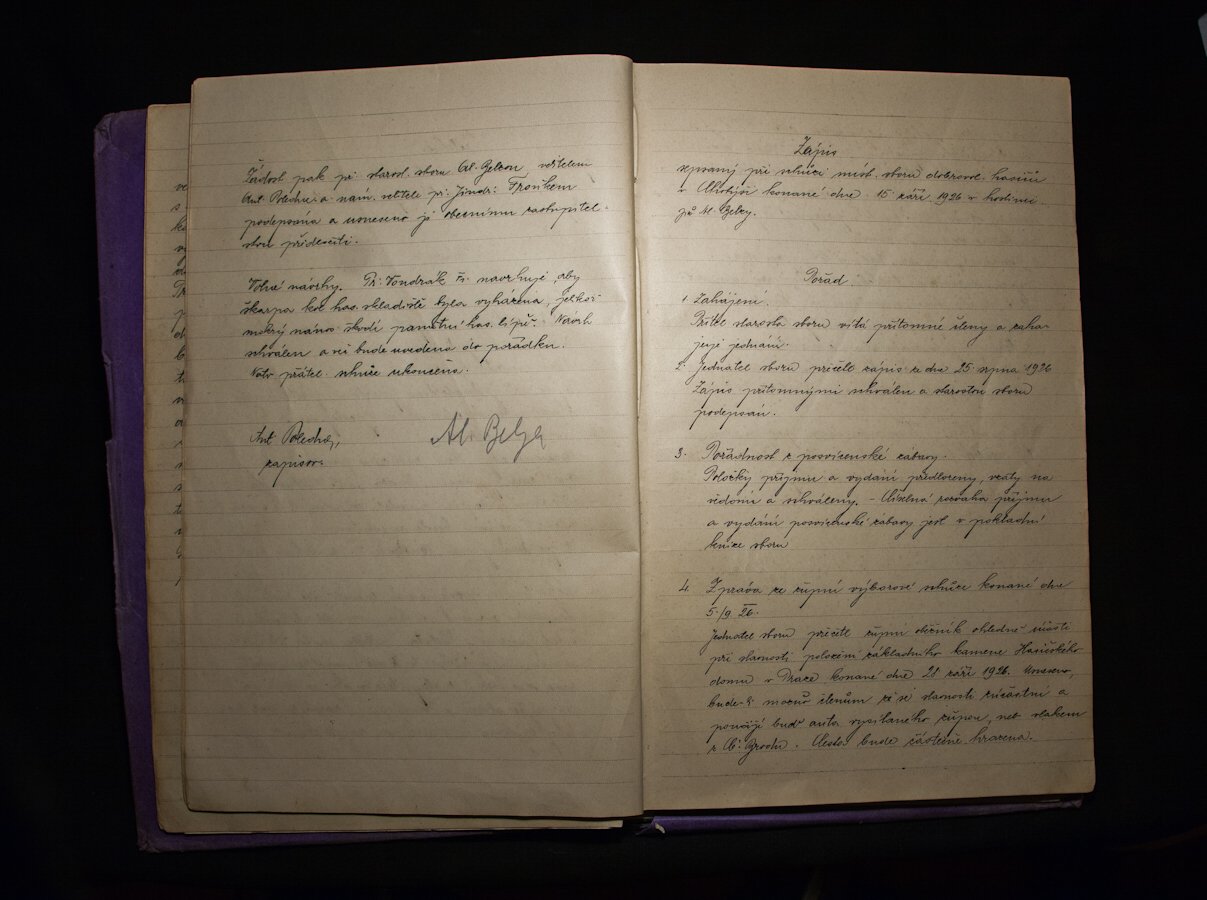 Žádost pak př. starost. sboru Al. Belzou velitelem
Ant. Polednu a nám. velitele př. Jindř. Froňkem
podepsána a usneseno ji obecnímu zastupitel-
stvu předložiti.
Volné návrhy. Př. Vondrák Fr. navrhuje, aby
škarpa kol has. skladiště byla vyházena, jelikož
mokrý nános škodí památní has. lípě. Návrh
schválen a věc bude uvedena do pořádku.
Nato přátel. schůze ukončena.
Ant. Poledna,
zapisov.
Al. Belza
Zápis
sepsaný při schůzi místn. sboru dobrovol. hasičů
v konané dne 15. září 1926 v hostinci
p. Al. Belzy.
Pořad.
1. Zahájení.
Přítel starosta sboru vítá přítomné členy a zaha-
juje jednání.
2. Jednatel sboru přečetl zápis ze dne 25. srpna 1926
Zápis přítomnými schválen a starostou sboru
podepsán.
3. Pořádnost z posvícenské zábavy.
Položky příjmu a vydání předloženy, vzaty na
vědomí a schváleny. - Číselná rozvaha příjmu
a vydání posvícenské zábavy jest v pokladní
knize sboru
4. Zpráva ze župní výborové schůze konané dne
5./9. 26.
Jednatel sboru přečetl župní oběžník ohledně účasti
při slavnosti položení základního kamene Hasičského
domu v Praze konané dne 28. září 1926. Usneseno,
bude-li možno členům se slavnosti zúčastní a
použijí buď auta vysílaného župou, neb vlakem
z Č. Brodu. Cesta bude částečně hrazena.